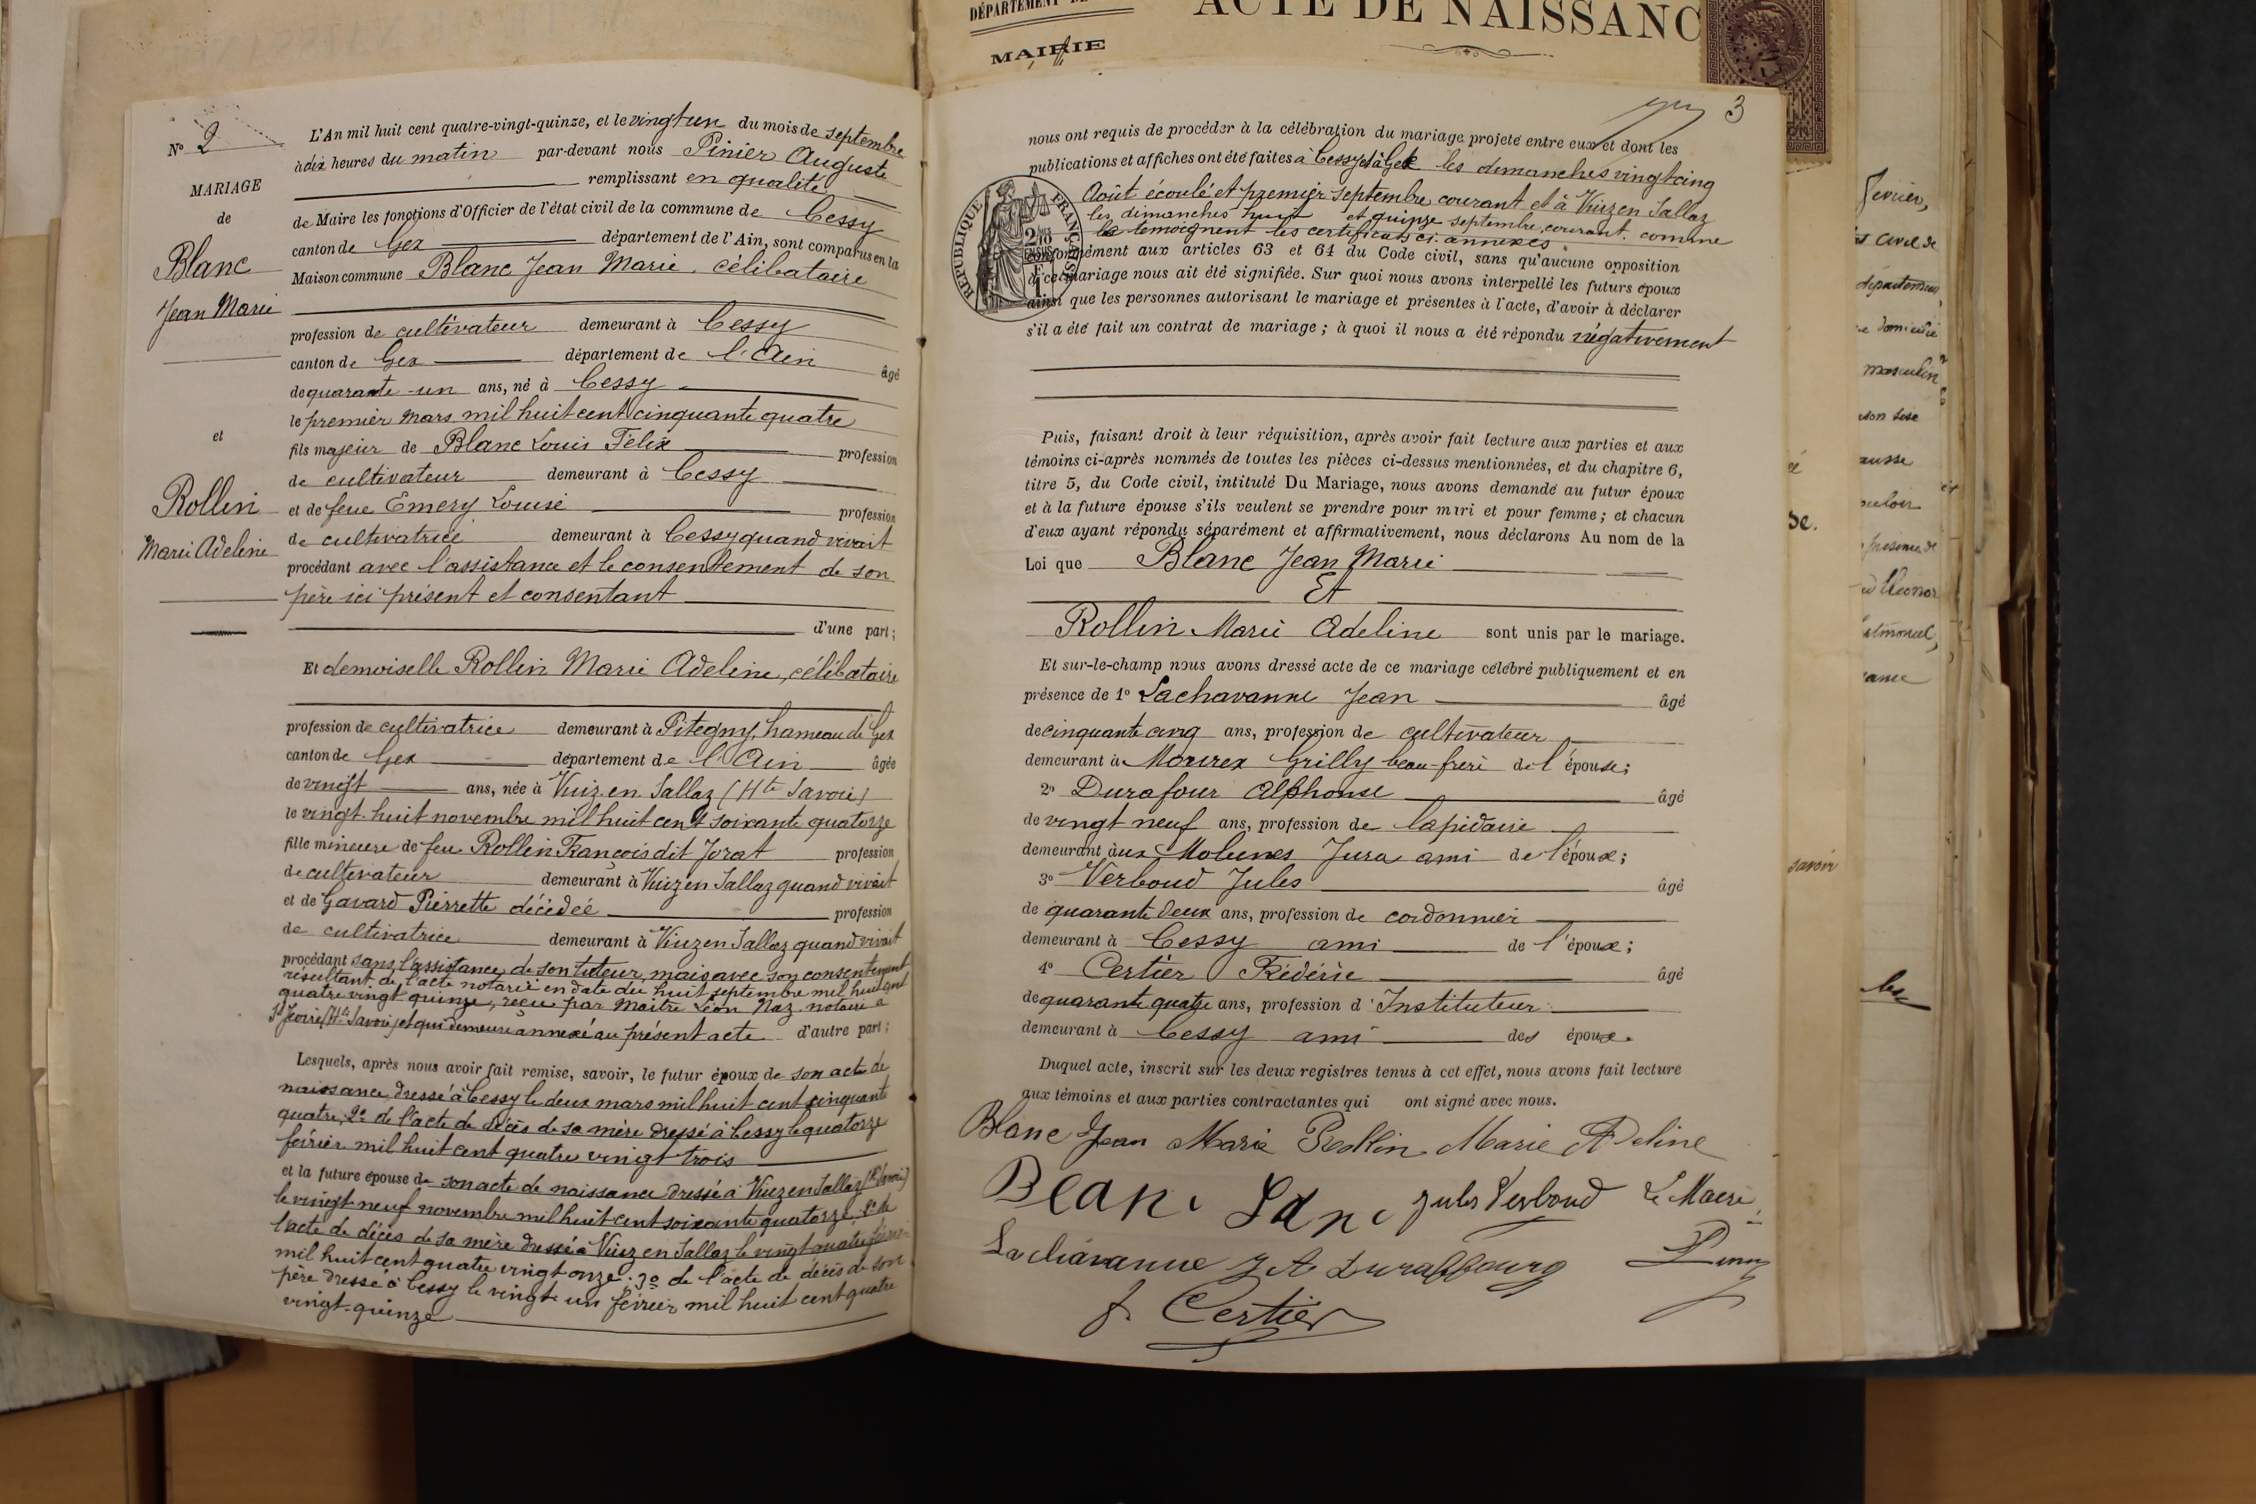 N° 2
MARIAGE
de
Blanc
Jean Marie
et
Rollin
Marie Adeline
L'An mil huit cent quatre-vingt-quinze, et le vingt un du mois de septembre
à dix heures du matin par-devant nous Pinier Auguste
remplissant en qualité
de Maire les fonctions d'Officier de l'état civil de la commune de Cessy
canton de Gex département de l'Ain, sont comparus en la
Maison commune Blanc Jean Marie, célibataire
profession de cultivateur demeurant à Cessy
canton de Gex département de l'Ain âgé
de quarante-un ans, né à Cessy
le premier mars mil huit cent cinquante quatre
fils majeur de Blanc Louis Félix profession
de cultivateur demeurant à Cessy
et de feue Emery Louise profession
de cultivatrice demeurant à Cessy quand vivait
procédant avec l'assistance et le consentement de son
père ici présent et consentant
d'une part;
Et demoiselle Rollin Marie Adeline, célibataire
profession de cultivatrice demeurant à Pitegny, hameau de Gex
canton de Gex département de l'Ain âgée
de vingt ans, née à Viuz en Sallaz (Hte Savoie)
le vingt-huit novembre mil huit cent soixante quatorze
fille mineure de feu Rollin François dit Jorat profession
de cultivateur demeurant à Viuz en Sallaz quand vivait
et de Gavard Pierrette décédée profession
de cultivatrice demeurant à Viuz en Sallaz quand vivait
procédant sans l'assistance de son tuteur, mais avec son consentement
résultant de l'acte notarié en date du huit septembre mil huit cent
quatre vingt quinze, reçu par Maître Léon Naz notaire à
St Jeoire (Hte Savoie) et qui demeure annexé au présent acte d'autre part;
Lesquels, après nous avoir fait remise, savoir, le futur époux de son acte de
naissance dressé à Cessy le deux mars mil huit cent cinquante
quatre, 2° de l'acte de décès de sa mère dressé à Cessy le quatorze
février mil huit cent quatre vingt trois
et la future épouse de son acte de naissance dressé à Viuz en Sallaz (Hte Savoie)
le vingt neuf novembre mil huit cent soixante quatorze, 2° de
l'acte de décès de sa mère dressé à Viuz en Sallaz le vingt quatre
mil huit cent quatre vingt onze. 3° de l'acte de décès de son
père dressé à Cessy le vingt un février mil huit cent quatre
vingt-quinze
DÉPARTEMENT DE
MAIRIE
ACTE DE NAISSANC
3
nous ont requis de procéder à la célébration du mariage projeté entre eux et dont les
publications et affiches ont été faites à Cessy et à Gex les dimanches vingt cinq
Août écoulé et premier septembre courant et à Viuz en Sallaz
les dimanches huit et quinze septembre courant. comme
le témoignent les certificats ci-annexés
conformément aux articles 63 et 64 du Code civil, sans qu'aucune opposition
à ce mariage nous ait été signifiée. Sur quoi nous avons interpellé les futurs époux
ainsi que les personnes autorisant le mariage et présentes à l'acte, d'avoir à déclarer
s'il a été fait un contrat de mariage; à quoi il nous a été répondu négativement
RÉPUBLIQUE FRANÇAISE
Puis, faisant droit à leur réquisition, après avoir fait lecture aux parties et aux
témoins ci-après nommés de toutes les pièces ci-dessus mentionnées, et du chapitre 6,
titre 5, du Code civil, intitulé Du Mariage, nous avons demandé au futur époux
et à la future épouse s'ils veulent se prendre pour mari et pour femme; et chacun
d'eux ayant répondu séparément et affirmativement, nous déclarons Au nom de la
Loi que Blanc Jean Marie
Et
Rollin Marie Adeline sont unis par le mariage.
Et sur-le-champ nous avons dressé acte de ce mariage célébré publiquement et en
présence de 1° Lachavanne Jean âgé
de cinquante cinq ans, profession de cultivateur
demeurant à Mourex Grilly beau-frère de l'épouse;
2° Durafour Alphonse âgé
de vingt neuf ans, profession de lapidaire
demeurant aux Molunes Jura ami de l'époux;
3° Verboud Jules âgé
de quarante deux ans, profession de cordonnier
demeurant à Cessy ami de l'époux;
4° Certier Frédéric âgé
de quarante quatre ans, profession d'Instituteur
demeurant à Cessy ami des époux.
Duquel acte, inscrit sur les deux registres tenus à cet effet, nous avons fait lecture
aux témoins et aux parties contractantes qui ont signé avec nous.
Blanc Jean Marie Rollin Marie Adeline
Blanc Jules Verboud Le Maire,
Lachavanne
f. Certier
février,
masculin
savoir